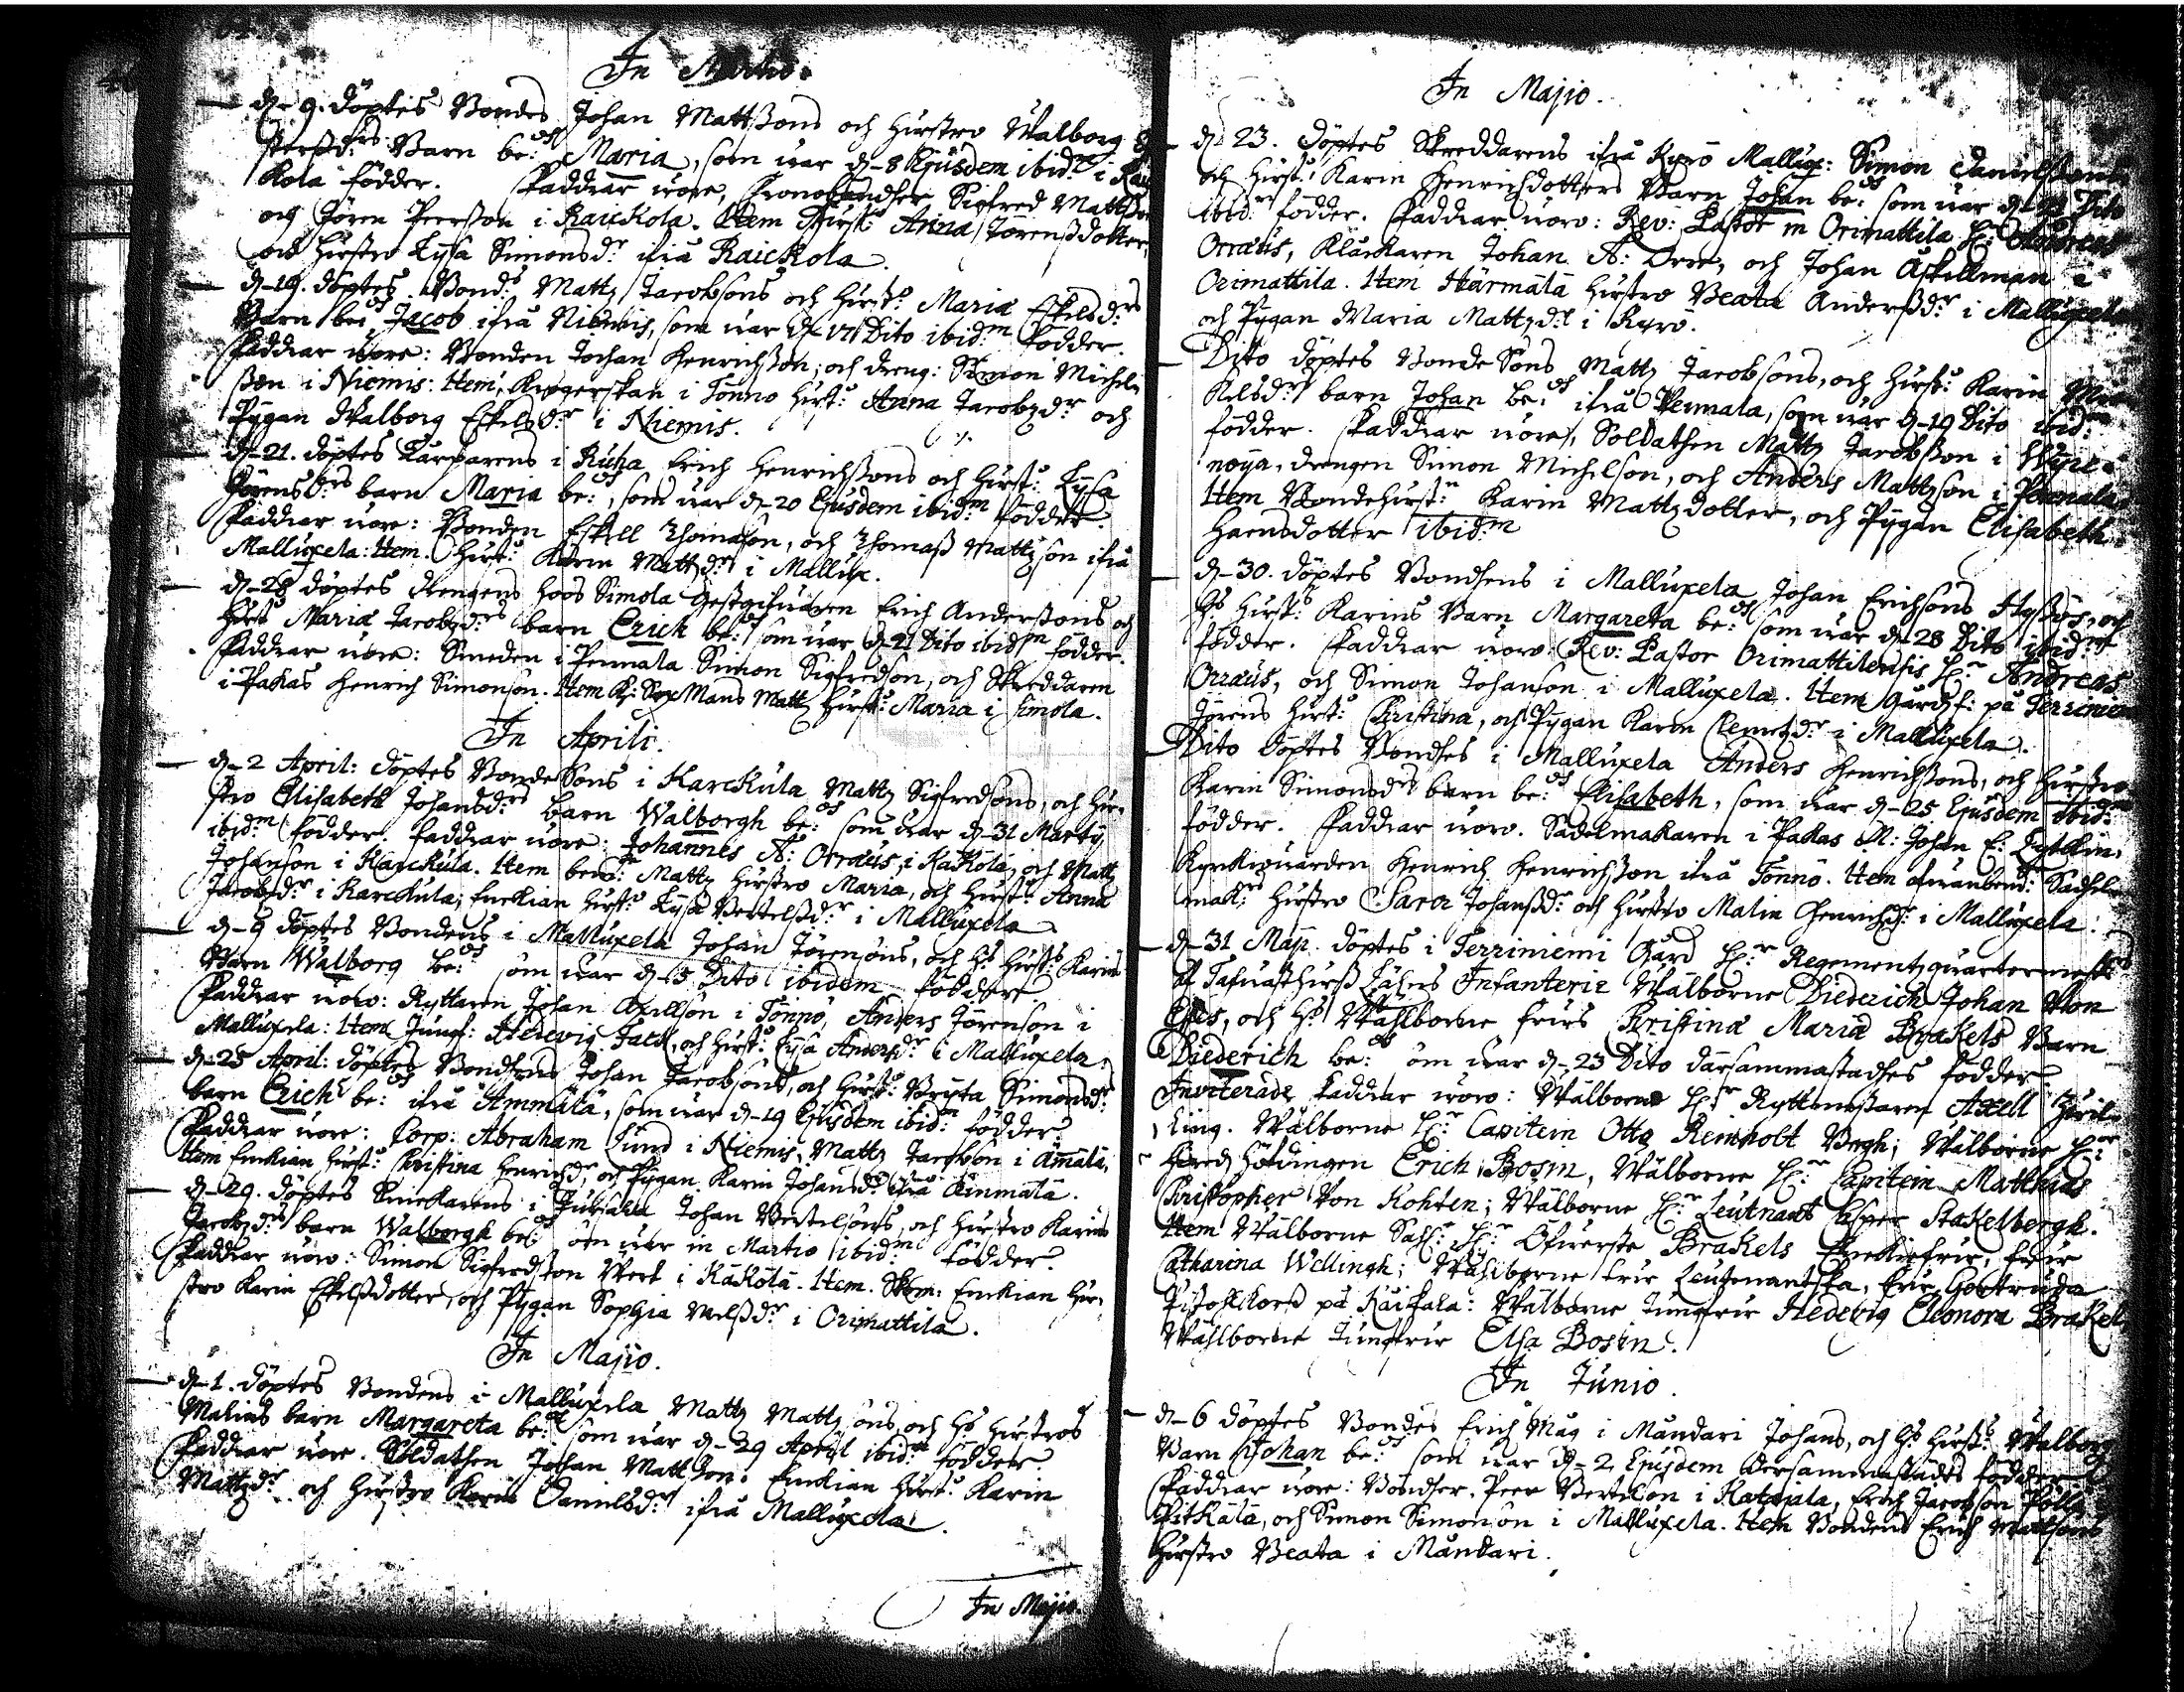 In Martio.
d. 9. döptes Bondes Johan Mattßons och Hustro Walborg
Persdrs Barn be:dh Maria, som war d. 8 Ejusdem ibid:m i
kola födder. Faddrar wore, Sigfred Mattßon
och Jören Peerßon i Raickola. Item Hust: Anna Jörenßdotter,
och Hustro Lysa Simonsdr ifrå Raickola.
d. 19. döptes Bond:s Mattz Jacobsons och Hust:s Maria Eskelsdrs
Barn be:dh Jacob ifrå Niemis, som war d. 17 Dito ibid:m födder.
Faddrar wore: Bonden Johan Henrichßon, och dreng: Simon Michel
ßon i Niemis: Item, Krögerskan i Tönno Hust: Anna Jacobzdr och
Pygan Walborg Eskelsdr i Niemis.
d. 21. döptes i Ruha Erich Henrichßons och Hust: Lysa
Jörensdrs barn Maria be:dh, som war d. 20 Ejusdem ibid:m födder.
Faddrar wore: Bonden Eskell Thomaßon, och Thomaß Mattzson ifrå
Mallusela: Item. Hust: Karin Mattzdr i Mallus.
d. 28 döptes drengens hoos Simola Gestgifwaren Erich Anderßons och
Hust: Maria Jacobzdrs barn Erich be:dh som war d. 21 Dito ibid:m födder.
Faddrar wore: Smeden i Pennala Simon Sigfredson, och Skreddaren
i Pakas Henrich Simonson. Item Mans Mattz Hust: Maria i Simola.
In Aprili.
d. 2 April: döptes BondeSons i Karckula Mattz Sigfredsons, och Hu-
stro Elisabeth Johansdrs barn Walborgh be:dh som war d. 31 Marty
ibid:m födder. Faddrar wore: Johannes A: Orraus, i Käkölä, och Mattz
Johanson i Karckula. Item bem:te Mattz Hustro Maria, och Hust: Anna
Jacobzdr i Karckula, Enckian Hust: Lysa Bertelßdr i Mallusela
d. 9 döptes Bondens i Mallusela Johan Jörensons, och Hs Hust:s Karins
Barn Walborg be:dh som war d. 5 Dito ibidem födder
Faddrar wore: Ryttaren Johan Axellson i Tönno, Anders Jörenson i
Mallusela: Item Jungf: Hedevig Falck, och Hust: Lysa Andersdr i Mallusela.
d. 25 April: döptes Bondhens Johan Jacobsons, och Hust: Bryta Simonsdr
barn Erich be:dh ifrå Ammälä, som war d. 19 Ejusdem ibid:m födder
Faddrar wore: Corp: Abraham Lund i Niemis, Mattz Jacobson i Ammälä,
Item Enckian Hust: Christina Henrichdr, och Pygan Karin Johansdr ifrå Ammälä.
d. 29. döptes i Johan Bertelsons, och Hustro Karins
Jacobzdrs barn Walborgh be:dh som war in Martio ibid:m födder.
Faddrar wore: Simon Sigfredsson Wert i Käkölä. Item. Enckian Hu-
stro Karin Eskelßdotter, och Pygan Sophia Nelßdr i Orimattila.
In Majio.
d. 1. döptes Bondens i Mallusela Mattz Mattzsons, och Hs Hustros
Malins barn Margareta be:dh som war d. 29 April ibid:m födder
Faddrar wore. Soldathen Johan Mattson. Enckian Hust: Karin
Mattzdr och Hustro Karin Danielsdr ifrå Mallusela.
In Majio.
In Majio.
d. 23. döptes Skreddarens ifrå Kyrö Mallus: Simon Danielßons
och Hust: Karin Henrichdotters Barn Johan be:dh som war d. Dito
ibid:m födder. Faddrar wore: Rev: Pastor in Orimattila H:r Andreas
Orraus, Klåckaren Johan A: Orre, och Johan Askillman i
Orimattila. Item Härmälä Hustro Beata Anderßdr i Mallusela
och Pygan Maria Mattzdr i Kyrö.
Dito döptes BondeSons Mattz Jacobsons, och Hust: Karin
kelsdrs barn Johan be:dh ifrå Pennala, som war d. 19 Dito ibid:m
födder. Faddrar wore, Soldathen Mattz Jacobßon i
noya, drengen Simon Michelson, och Anders Mattzson i Pennala
Item BondeHust:n Karin Mattzdotter, och Pygan Elisabeth
Hansdotter ibid:m
d. 30. döptes Bondhens i Mallusela Johan Erichsons och
Hs Hust:s Karins Barn Margareta be:dh som war d. 28 Dito ibid:m
födder. Faddrar wore: Rev: Pastor Orimattilensis H:r Andreas
Orraus, och Simon Johanson i Mallusela. Item Gårdz f: på Terriniem
Jörens Hust: Christina, och Pygan Karin Clemetzdr i Mallusela.
Dito döptes Bondhes i Mallusela Anders Henrichßons, och Hustro
Karin Simonsdrs barn be:dh Elisabeth, som war d. 25 Ejusdem ibid:m
födder. Faddrar wore. Sadelmakaren i Pakas M: Johan E:
Kyrkiowärden Henrich Henrichßon ifrå Tönnö. Item ofwanbem:te Sadhel-
mak: Hustro Sara Johanßdr och Hustro Malin Henrichdr i Mallusela:
d. 31 Maji. döptes i Terriniemi Gård H:r Regementzquartermest:s
af Tafwastehuß Lähns Infanterie Wälborne Diederich Johan Von
Essens, och Hs Wählborne Frues Christina Maria Brakels Barn
Diederich be:dh som war d. 23 Dito därsammastadhes födder
Inviterade Faddrar wore: Wälborne H:r Ryttmestaren Axell
ling. Wälborne H:r Capitein Otto Reinholt Vegh; Wälborne H:r
Heredz Höfdingen Erich Bosin, Wälborne H:r Capitein Matthias
Christopher Von Kohten; Wälborne H:r Leutnant Casper Stakelbergh.
Item Wälborne Sahl: H:r Öfwerste Brakels Enckiefrue, frue
Catharina Wellingh; Wählborne frue Leutenantska, frue Gertruda
Pistollkorß på Käikälä: Wälborne Jungfrue Hedevig Eleonora Brakel,
Wählborne Jungfrue Elsa Bosin.
In Junio.
d. 6 döptes Bondes Erich Mag i Mandari Johans, och Hs Hust:s Walborg
Barn Johan be:dh som war d. 2 Ejusdem dersammastades födder
Faddrar wore: Bondher. Peer Bertilson i Katajala, Erich Jacobson
Pitkälä, och Simon Simonson i Mallusela. Item Bondens Erich Mattsons
Hustro Beata i Mandari.